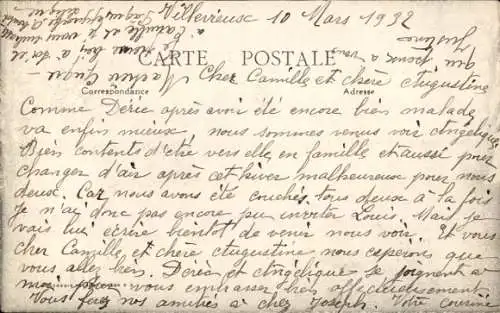 Villevieuse 10 Mars 1932
CARTE POSTALE
Cher Camille et chère Augustine
Correspondance Adresse
Comme Dérie après avoir été encore bien malade
va enfin mieux, nous sommes venus voir Angélique
Bien contents d'être vers elle, en famille et aussi pour
changer d'air après cet hiver malheureux pour nous
deux. Car nous avons été couchés tous deux à la fois
Je n'ai donc pas encore pu inviter Louis. Mais je
vais lui écrire bientôt de venir nous voir. Et vous
cher Camille et chère Augustine nous espérons que
vous allez bien. Dérie et Angélique se joignent à
moi pour vous embrasser bien affectueusement
Vous ferez nos amitiés à chez Joseph. Votre cousine
qui pense à vous